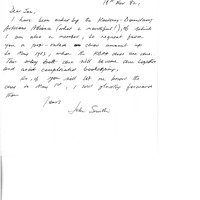 18th Nov 82.
Dear Sir,
I have been asked by the
Artisans Alliance (what a mouthful!), of which
I am also a member, to request from
you a pro-rated dues amount up
to May 1983, when the dues are due.
This way both dues will become due together
and avoid complicated bookkeeping.
So, if you will let me know the
dues to May 1st, I will gladly forward
them
Yours
John Smith